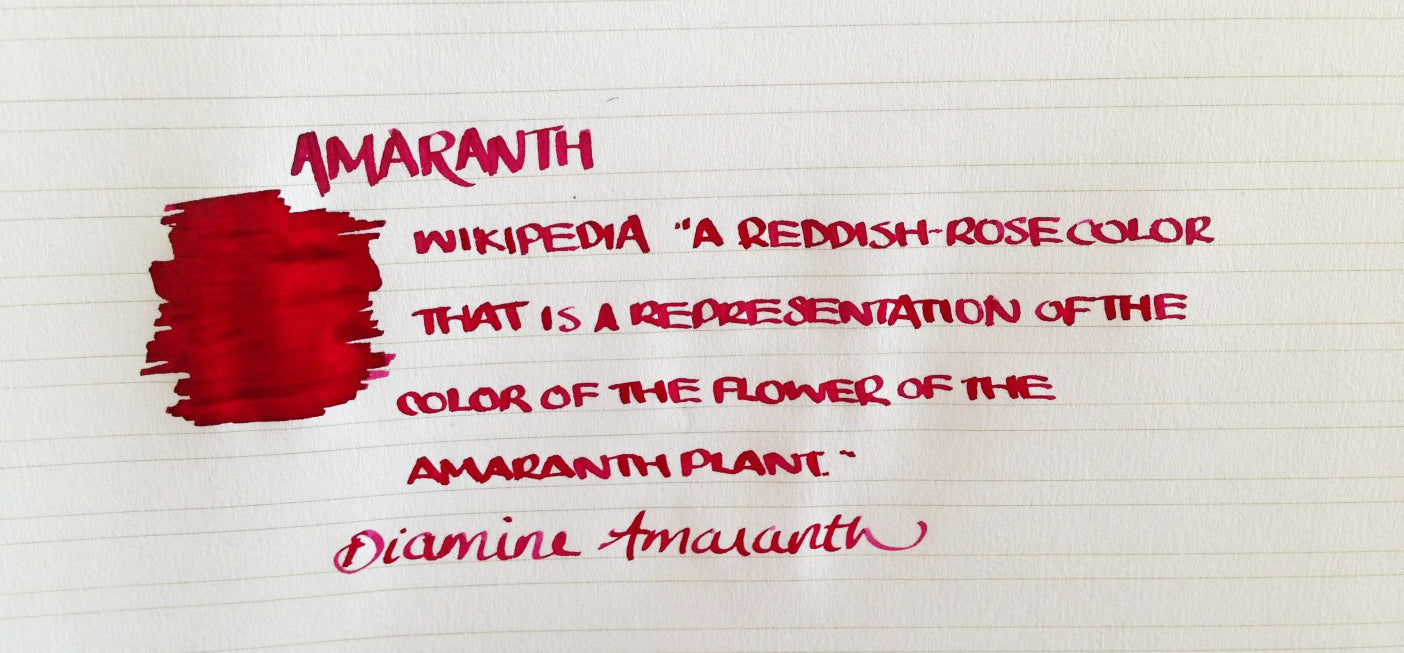 AMARANTH
WIKIPEDIA "A REDDISH-ROSE COLOR
THAT IS A REPRESENTATION OF THE
COLOR OF THE FLOWER OF THE
AMARANTH PLANT."
Diamine Amaranth